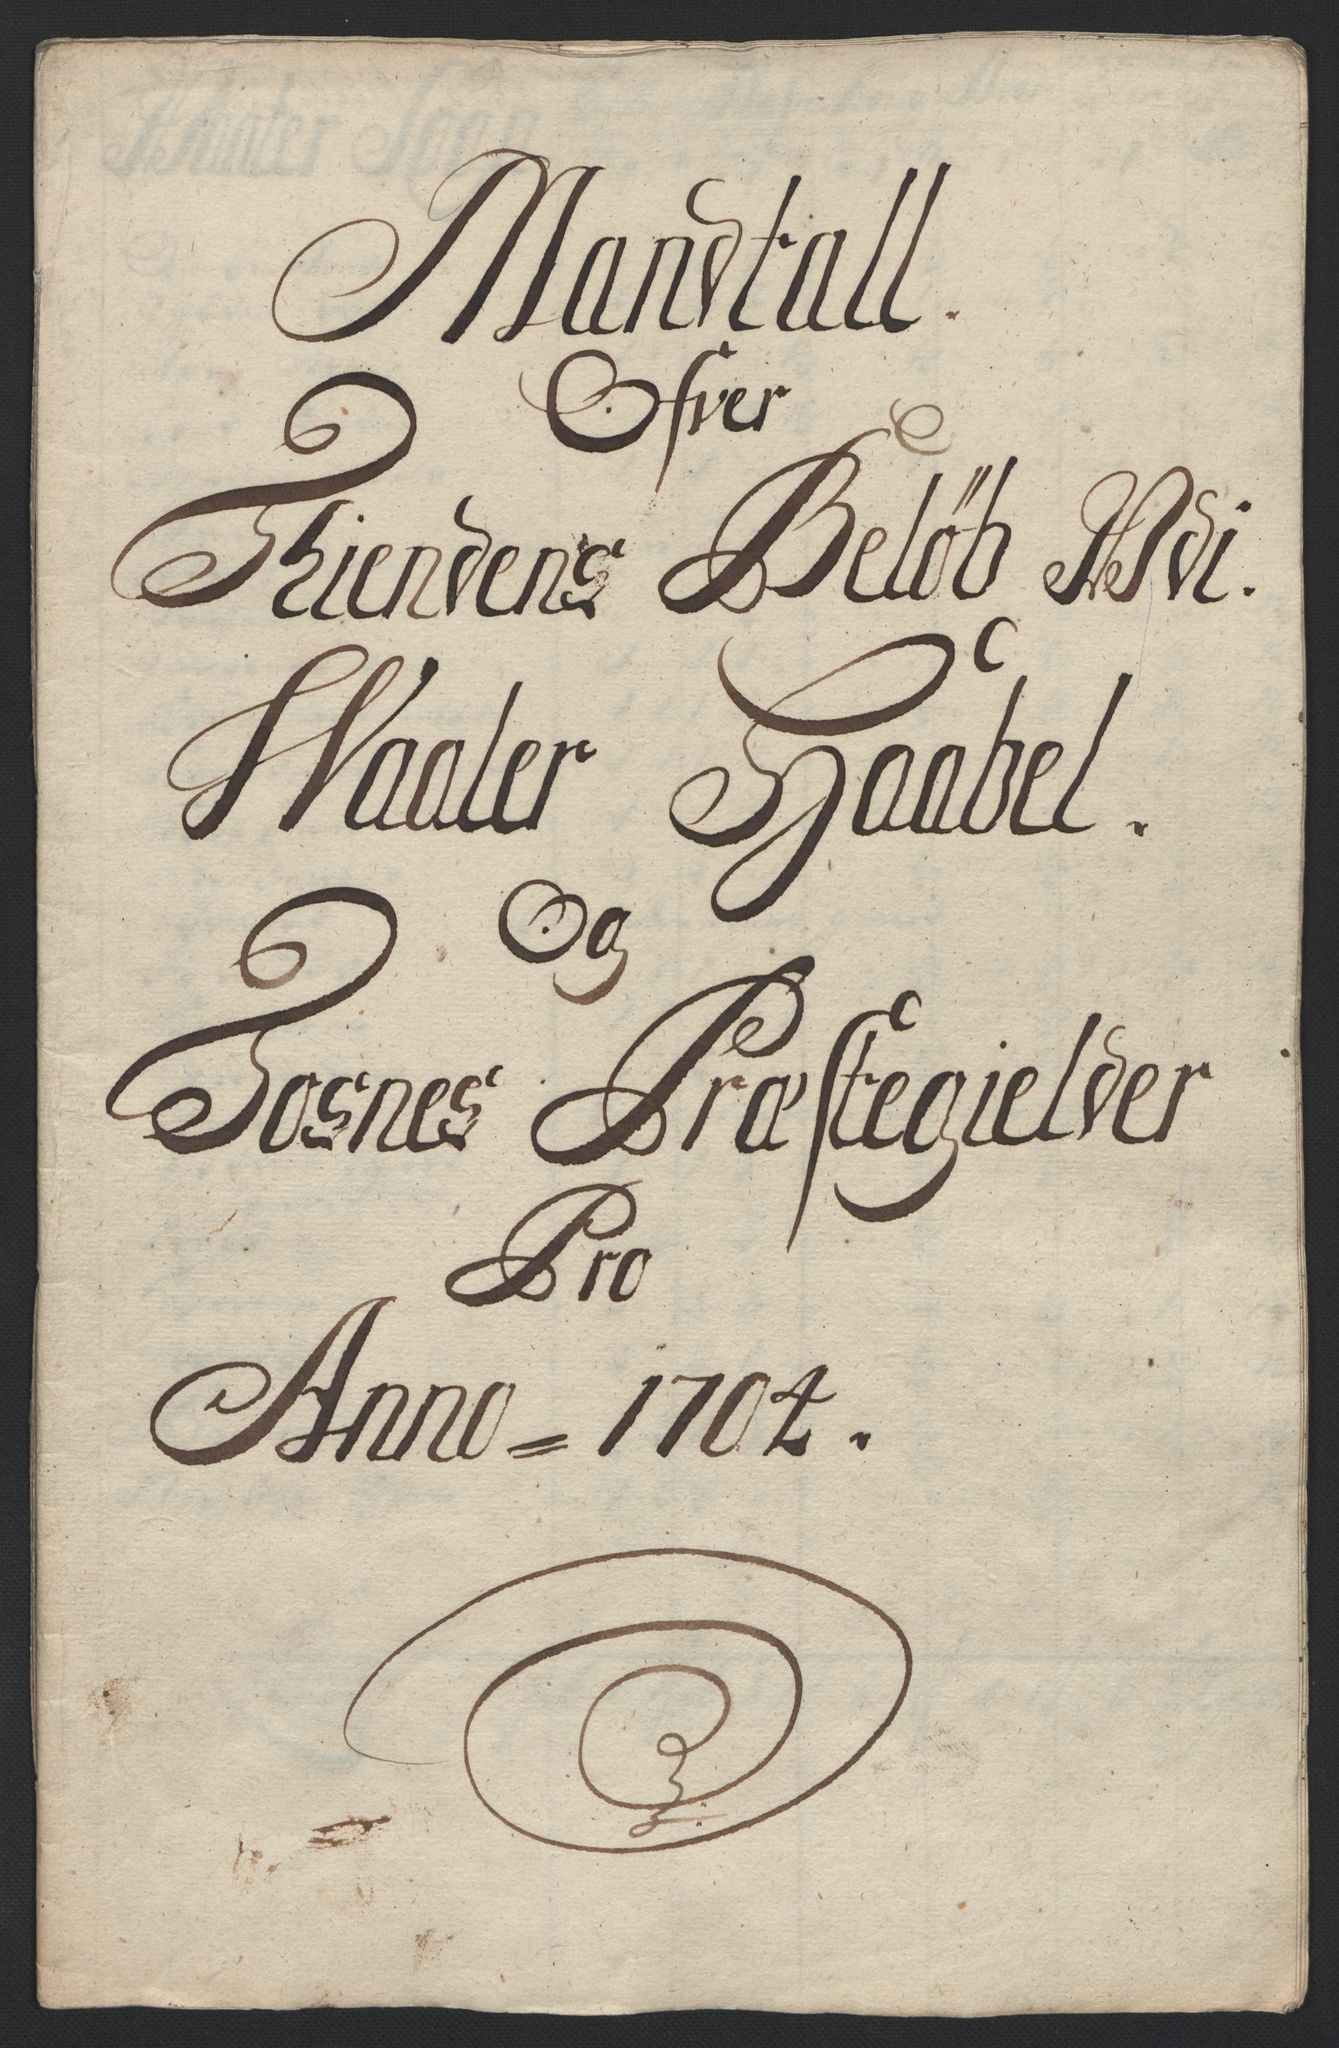 Mandtall.
Ofver
Thiendens Belöb Udi.
Waaler Haabel.
Og
Tosnes Præstegielder
Pro
Anno = 1704.